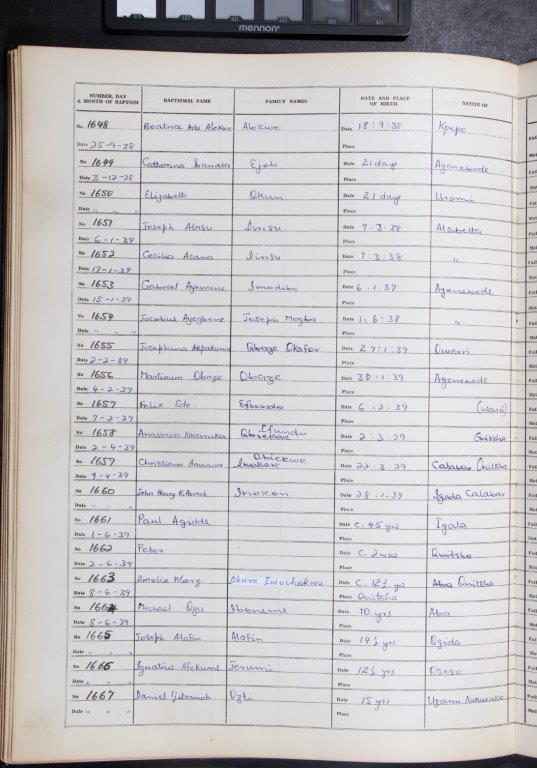 mennon
NUMBER, DAY & MONTH OF BAPTISM BAPTISMAL NAME FAMILY NAMES DATE AND PLACE OF BIRTH NATIVE OF
No. 1648 Beatrice Ada Alokwe Alokwe Date 18:9:38 Kpepe
Date 25-9-38 Place
No 1649 Catherina Ejeh Date 21 days Agenebode
Date 3-12-38 Place
No 1650 Elizabeth Okun Date 21 days Uromi
Date " " " Place
No 1651 Joseph Alasu Date 7.3.38
Date 6-1-39 Place
No 1652 Cecilia Asana Date 7:3:38 "
Date 17-1-39 Place
No 1653 Gabriel Ayemene Imodibo Date 6.1.37 Agenebode
Date 15-1-39 Place
No 1654 Jacobus Ayegbene Joseph Mogba Date 1.6:38 "
Date " " " Place
No 1655 Josephina Akpakuma Okafor Date 27:1:39 Owerri
Date 2-2-39 Place
No 1656 Martinum Obaze Obaze Date 30.1.39 Agenebode
Date 4-2-39 Place
No 1657 Felix Ede Date 6:2:39 (Warri)
Date 7-2-39 Place
No 1658 Anastasia Nkemaka Efundu Date 2:3:39 Onitsha
Date 2-4-39 Place
No 1659 Christiana Amenna Obiekwe Date 22:3.39 Calabar Onitsha
Date 9-4-39 Place
No 1660 John Henry K. Inokon Date 28:1.39 Calabar
Date " " " Place
No 1661 Paul Agidde Date c. 45 yrs Igala
Date 1-6-39 Place
No 1662 Peter Date c. 2 wks Onitsha
Date 2-6-39 Place
No 1663 Amelia Mary Obura Iwuchukwu Date c. 12½ yrs Aba Onitsha
Date 8-6-39 Place Onitsha
No 1664 Michael Ogu Date 10 yrs Aba
Date 8-6-39 Place
No 1665 Joseph Alafin Alafin Date 14½ yrs Ogida
Date " " " Place
No 1666 Ignatius Afekume Jerumi Date 12½ yrs Ososo
Date " " " Place
No 1667 Daniel Ijitemoh Ozli Date 15 yrs Uzanu Kukuruko
Date " " " Place